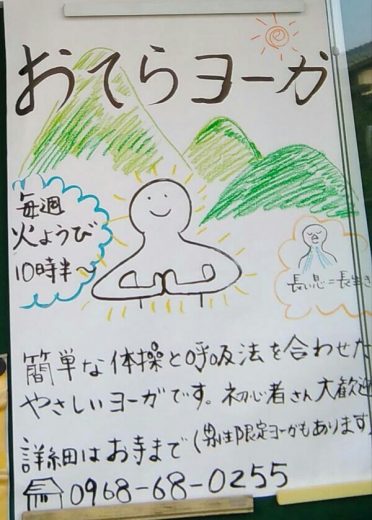 おてらヨーガ
毎週
火ようび
10時半〜
長い息=長生き
簡単な体操と呼吸法を合わせた
やさしいヨーガです。初心者さん大歓迎
詳細はお寺まで(男性限定ヨーガもあります)
0968-68-0255